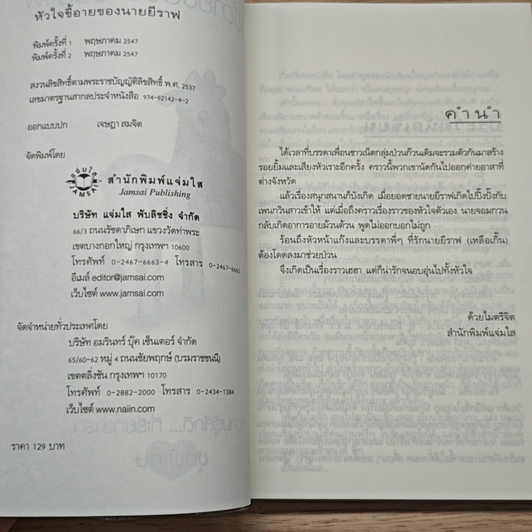 หัวใจขี้อายของนายยีราฟ
พิมพ์ครั้งที่ 1 พฤษภาคม 2547
พิมพ์ครั้งที่ 2 พฤษภาคม 2547
สงวนลิขสิทธิ์ตามพระราชบัญญัติลิขสิทธิ์ พ.ศ. 2537
เลขมาตรฐานสากลประจำหนังสือ 974-92142-4-2
ออกแบบปก เจษฎา สมจิต
จัดพิมพ์โดย
สำนักพิมพ์แจ่มใส
Jamsai Publishing
บริษัท แจ่มใส พับลิชชิ่ง จำกัด
66/3 ถนนรัชดาภิเษก แขวงวัดท่าพระ
เขตบางกอกใหญ่ กรุงเทพฯ 10600
โทรศัพท์ 0-2467-6663-4 โทรสาร 0-2467-6663
อีเมล์ editor@jamsai.com
เว็บไซต์ www.jamsai.com
จัดจำหน่ายทั่วประเทศโดย
บริษัท อมรินทร์ บุ๊ค เซ็นเตอร์ จำกัด
65/60-62 หมู่ 4 ถนนชัยพฤกษ์ (บรมราชชนนี)
เขตตลิ่งชัน กรุงเทพฯ 10170
โทรศัพท์ 0-2882-2000 โทรสาร 0-2434-1384
เว็บไซต์ www.naiin.com
ราคา 129 บาท
คำนำ
ได้เวลาที่บรรดาเพื่อนชาวเน็ตกลุ่มป่วนก๊วนเดิมจะรวมตัวกันมาสร้าง
รอยยิ้มและเสียงหัวเราะอีกครั้ง คราวนี้พวกเขานัดกันไปออกค่ายอาสาที่
ต่างจังหวัด
แล้วเรื่องสนุกสนานก็บังเกิด เมื่อยอดชายนายยีราฟเกิดไปปิ๊งปั๊งกับ
เพนกวินสาวเข้าให้ แต่เมื่อถึงคราวเรื่องราวของหัวใจตัวเอง นายจอมกวน
กลับเกิดอาการอายม้วนต้วน พูดไม่ออกบอกไม่ถูก
ร้อนถึงหัวหน้าแก๊งและบรรดาพี่ๆ ที่รักนายยีราฟ (เหลือเกิ๊น)
ต้องโดดลงมาช่วยป่วน
จึงเกิดเป็นเรื่องราวเฮฮา แต่ก็น่ารักจนอบอุ่นไปทั้งหัวใจ
ด้วยไมตรีจิต
สำนักพิมพ์แจ่มใส